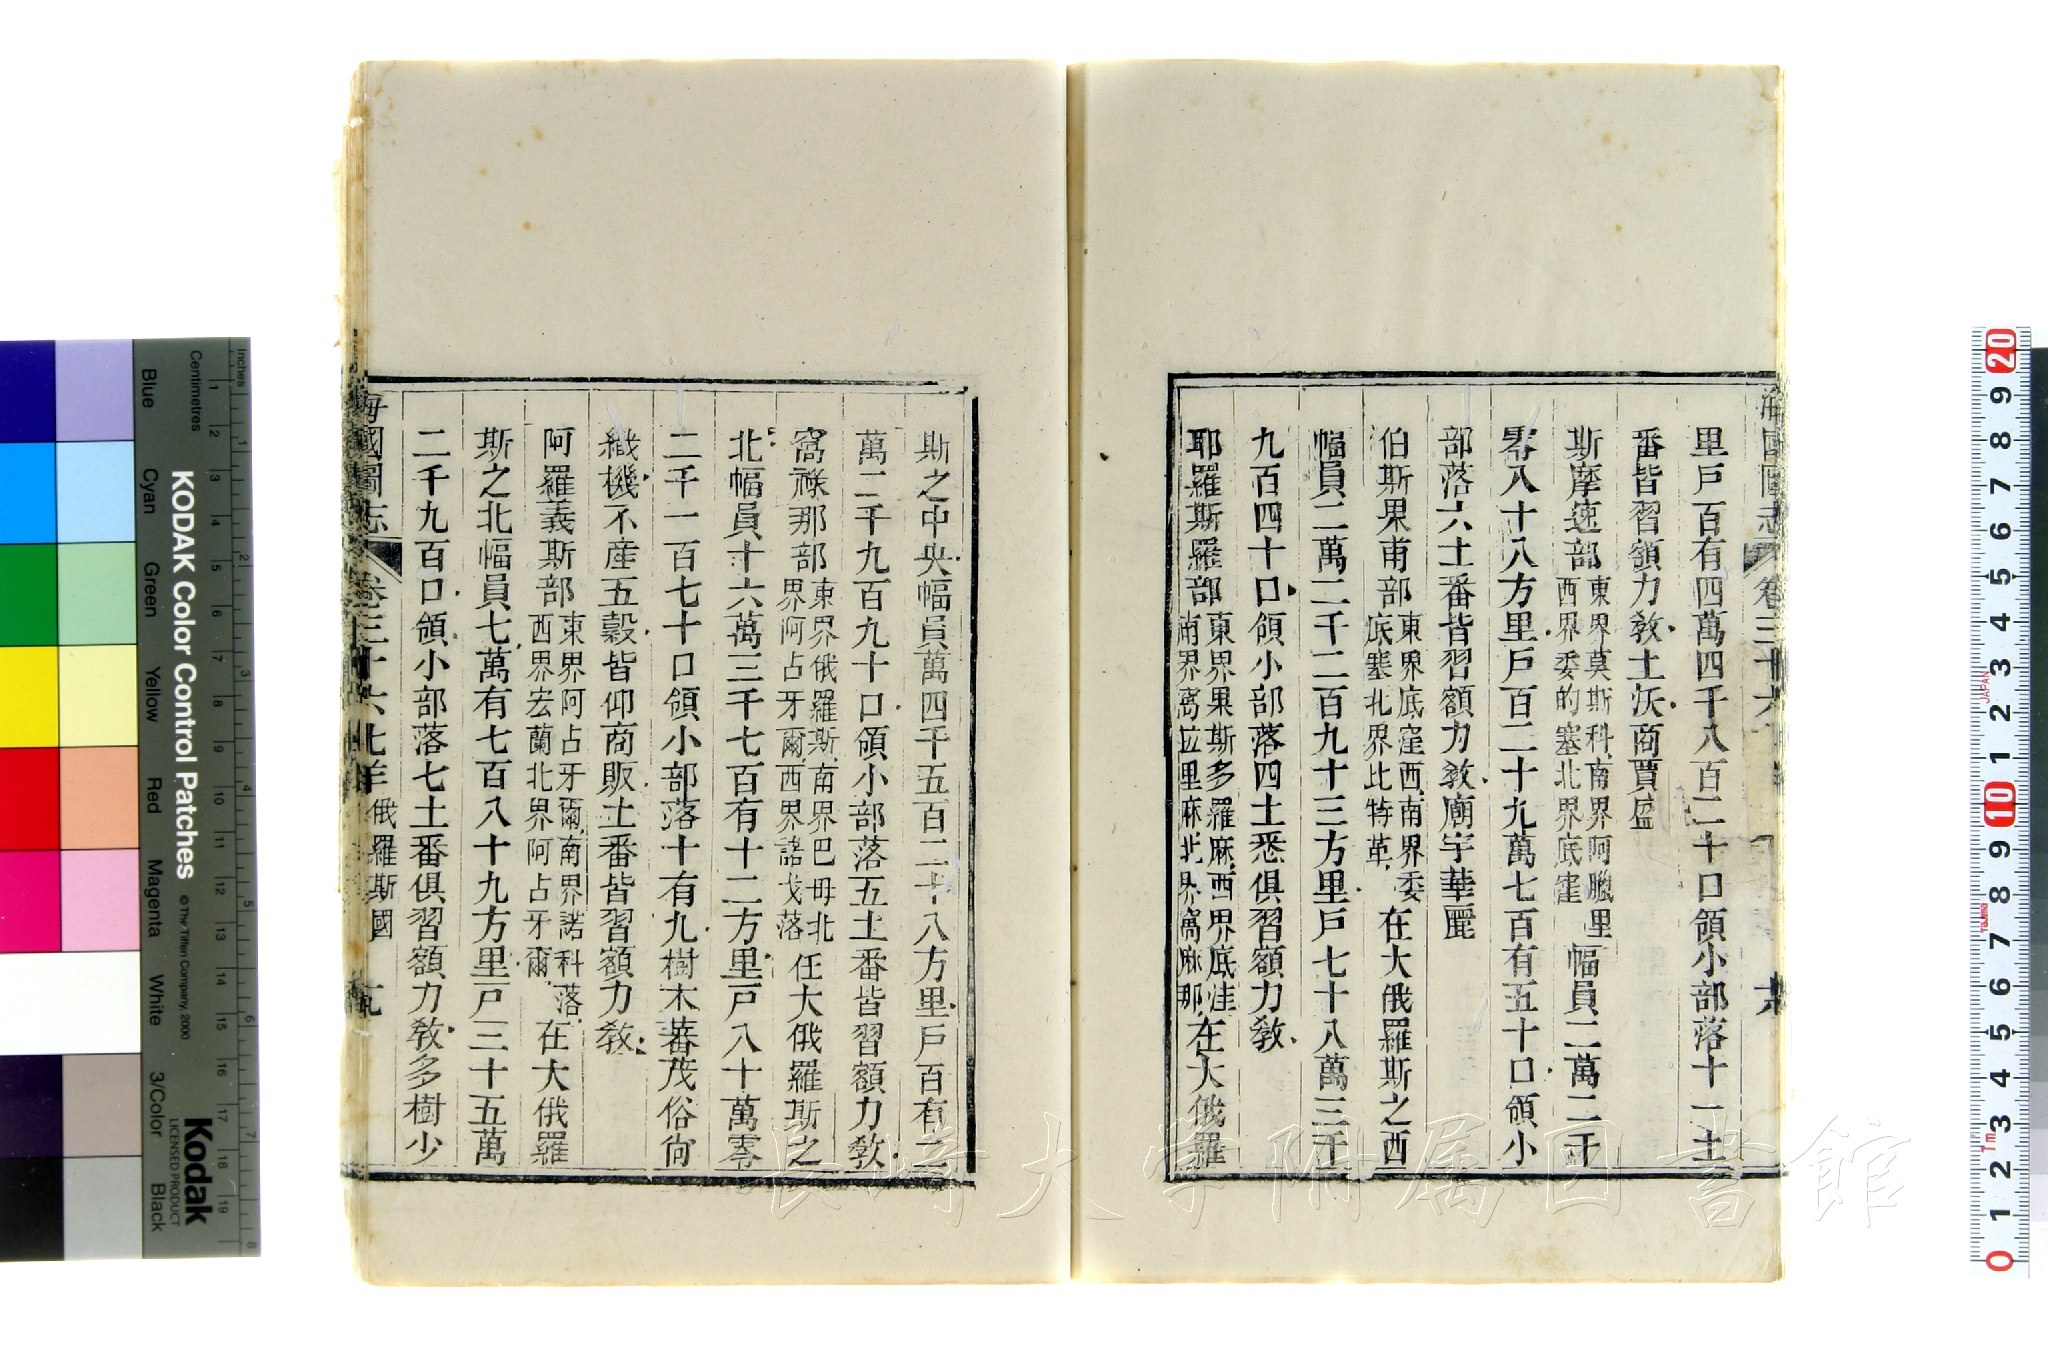 里戸百有四萬四千八百二十口領小部落十一土
番皆習額力教土沃商賈盛
斯摩速部東界莫斯科南界阿臘里西界委的塞北界底窪幅員二萬二千
零八十八方里戸百二十九萬七百有五十口領小
部落六土番皆習額力教廟宇華麗
伯斯果甫部東界底窪西南界委底塞北界比特革在大俄羅斯之西
幅員二萬二千二百九十三方里戸七十八萬三千
九百四十口領小部落四土悉俱習額力教
耶羅斯羅部東界果斯多羅麻西界底洼南界窩拉里麻北界窩麻那在大俄羅
斯之中央幅員萬四千五百二十八方里戸百有二
萬二千九百九十口領小部落五土番皆習額力教
窩祿那部東界俄羅斯南界巴毋北界阿占牙爾西界諾戈落在大俄羅斯之
北幅員十六萬三千七百有十二方里戸八十萬零
二千一百七十口領小部落十有九樹木蕃茂俗尙
織機不產五穀皆仰商販土番皆習額力教
阿羅義斯部東界阿占牙爾南界諾科落西界宏蘭北界阿占牙爾在大俄羅
斯之北幅員七萬有七百八十九方里戸三十五萬
二千九百口領小部落七土番俱習額力教多樹少
海國圖志 卷三十六 北洋 俄羅斯國
KODAK Color Control Patches
© The Tiffen Company, 2000
Kodak
LICENSED PRODUCT
Inches
Centimetres
Blue
Cyan
Green
Yellow
Red
Magenta
White
3/Color
Black
長崎大学附属図書館